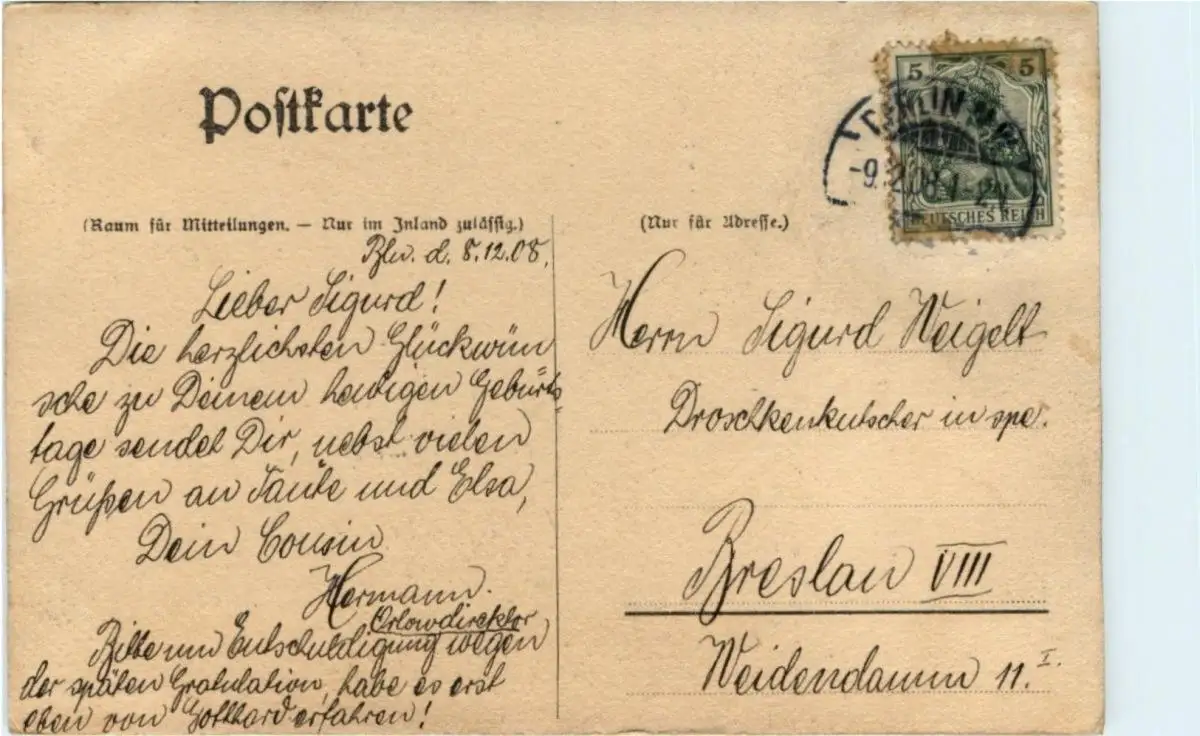 Postkarte
(Raum für Mitteilungen. — Nur im Inland zulässig.)
Bln. d. 8.12.08.
Lieber Sigurd!
Die herzlichsten Glückwün
sche zu Deinem heutigen Geburts-
tage sendet Dir, nebst vielen
Grüßen an Tante und Elsa,
Dein Cousin
Hermann.
Bitte um Entschuldigung wegen
der späten Gratulation, habe es erst
eben von Gotthard erfahren!
(Nur für Adresse.)
5 5
BERLIN
-9.12.08.1-2N
DEUTSCHES REICH
Herrn Sigurd Weigelt
Droschkenkutscher in spe.
Breslau VIII
Weidendamm 11. I.